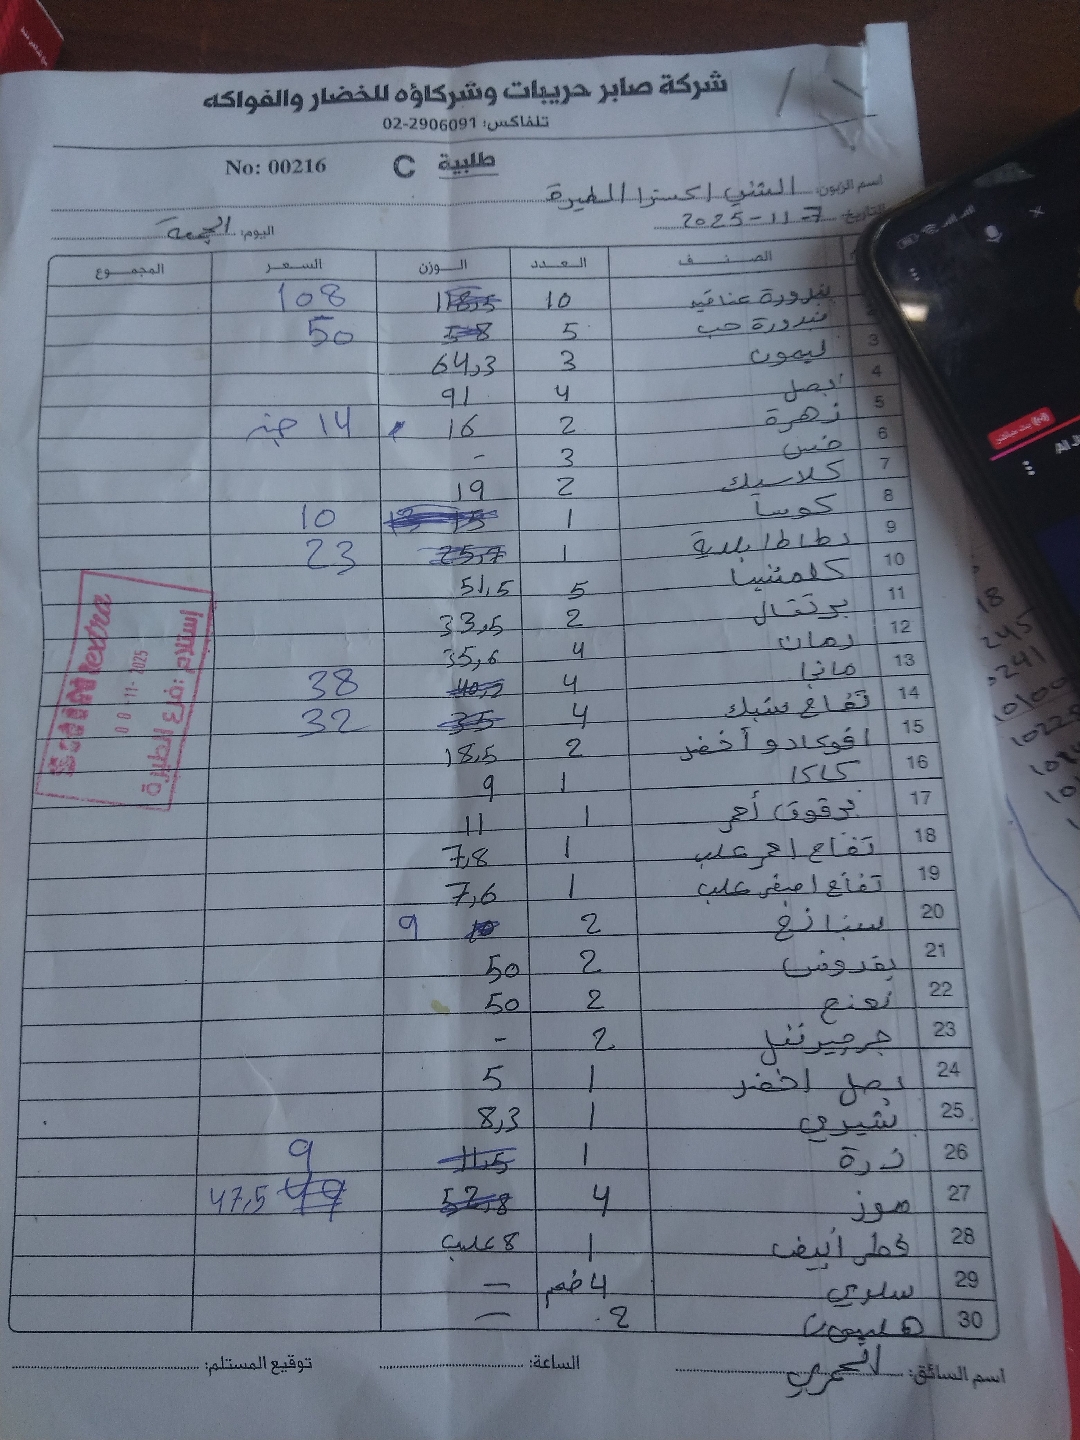 شركة صابر حريبات وشركاؤه للخضار والفواكه
تلفاكس: 02-2906091
No: 00216 C طلبية
اسم الزبون: المثنى اكسترا الطيرة
التاريخ 2025-11-7 اليوم: الجمعة
الصنف العدد الوزن السعر المجموع
بندورة عناقيد 10 118,5 108
بندورة حب 5 58 50
3 ليمون 3 64,3
4 بصل 4 91
5 زهرة 2 16 14
6 خس 3 -
7 كلاسيك 2 19
8 كوسا 1 15 13 10
9 بطاطا بلدية 1 25,7 23
10 كلمنتينا 5 51,5
11 برتقال 2 33,5
12 رمان 4 35,6
13 مانجا 4 40,2 38
14 تفاح سبك 4 35 32
15 افوكادو أخضر 2 18,5
16 كاكا 1 9
17 برقوق أحمر 1 11
18 تفاح احمر علب 1 7,8
19 تفاح اصفر علب 1 7,6
20 سبانخ 2 10 9
21 بقدونس 2 50
22 نعنع 2 50
23 جرجير 2 -
24 بصل اخضر 1 5
25 شيري 1 8,3
26 ذرة 1 11,5 9
27 موز 4 52,8 49 47,5
28 فطر أبيض 1 8 علب
29 سلري 4 ضم -
30 هليون 2 -
اسم السائق: العمري الساعة: توقيع المستلم: